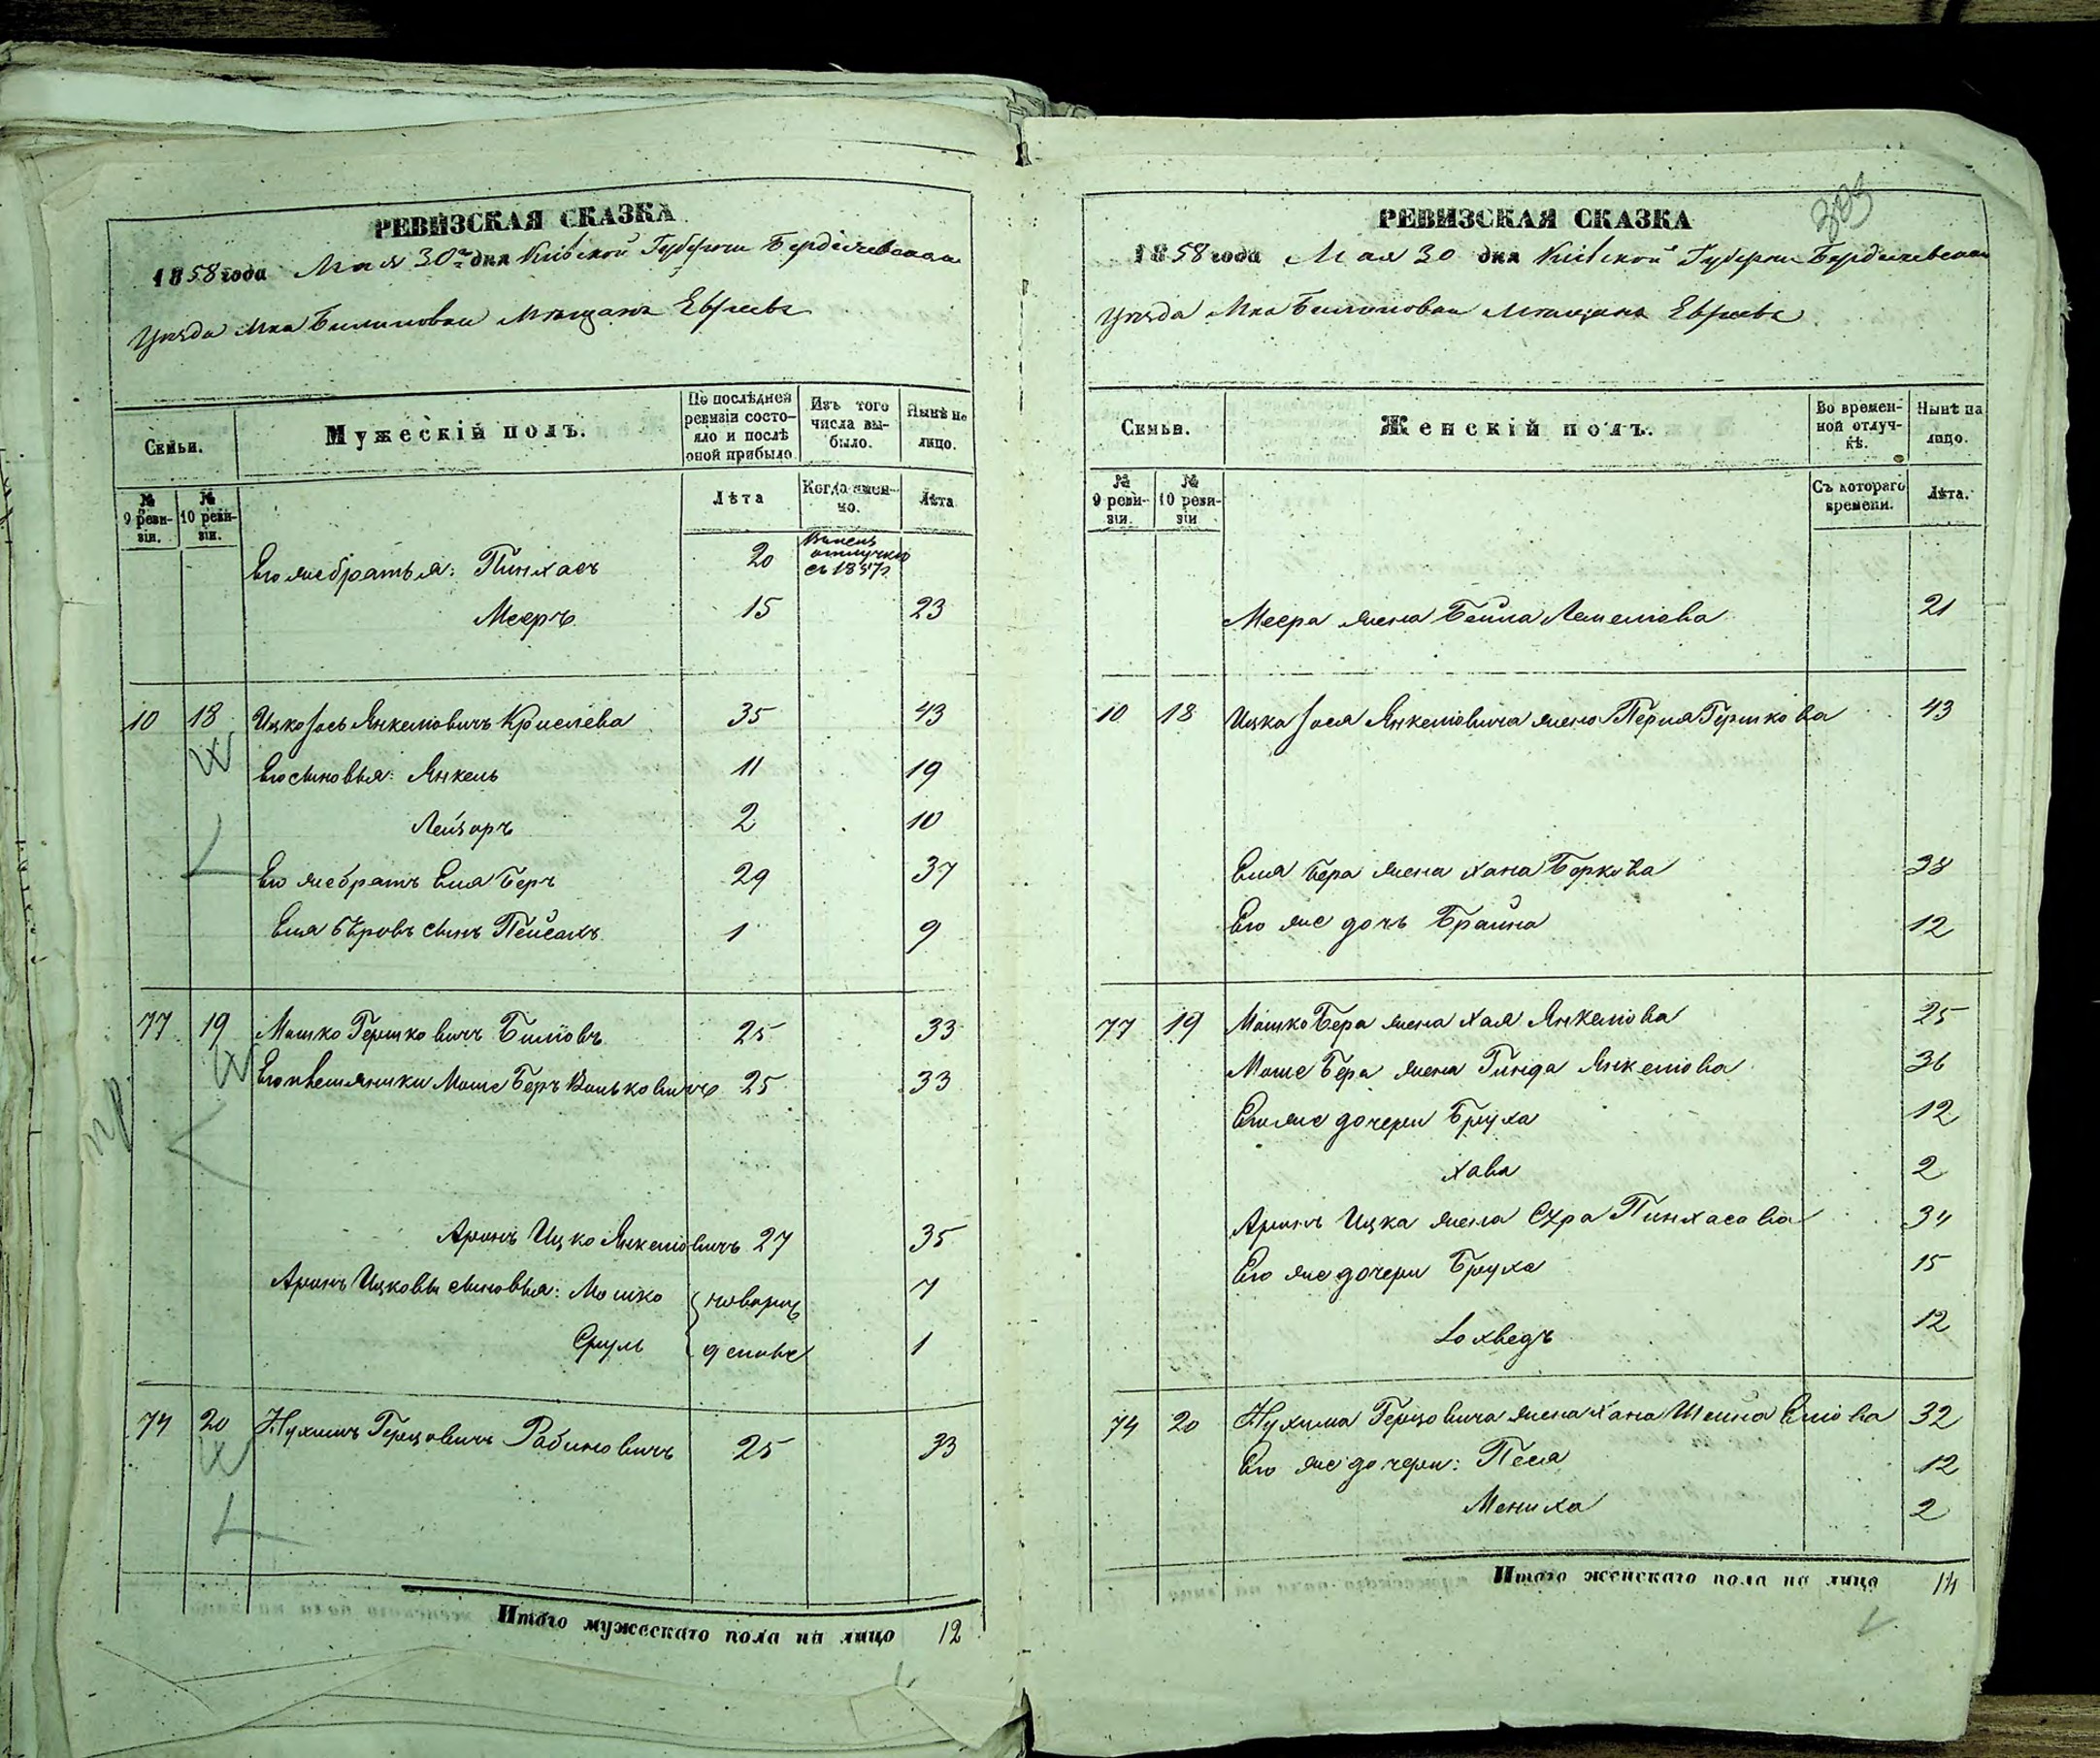 РЕВИЗСКАЯ СКАЗКА
1858 года Мая 30го дня Кіевской Губерніи Бердичевскаго
Уѣзда Мка Билиловки Мѣщанъ Евреевъ
Семьи.
Мужескій полъ.
По послѣдней ревизіи состояло и послѣ оной прибыло.
Изъ того числа выбыло.
Нынѣ на лицо.
№ 9 ревизіи.
№ 10 ревизіи.
Лѣта
Когда именно.
Лѣта
Его же братья: Пинхасъ 20 отлучкѣ съ 1857г
Мееръ 15 23
10 18 Ицко Іось Янкелевичъ 35 43
Его сыновья: Янкель 11 19
Лейзоръ 2 10
Его же братъ Еля Беръ 29 37
Еля Беровъ сынъ Пейсахъ 1 9
77 19 Мошко Гершковичъ 25 33
Его племянники Моше Беръ Вольковичъ 25 33
Аронъ Ицко Янкелевичъ 27 35
Аронъ Ицковы сыновья: Мошко новорож 7
Сруль денные 1
74 20 Нухимъ Герцовичъ Рабиновичъ 25 33
Итого мужескаго пола на лицо 12
РЕВИЗСКАЯ СКАЗКА
1858 года Мая 30 дня Кіевской Губерніи Бердичевскаго
Уѣзда Мка Билиловки Мѣщанъ Евреевъ
Семьи.
Женскій полъ.
Во временной отлучкѣ.
Нынѣ на лицо.
№ 9 ревизіи.
№ 10 ревизіи
Съ котораго времени.
Лѣта.
Меера жена Бейла 21
10 18 Ицка Іося Янкелевича жена Перля Гершкова 43
Еля Бера жена Хана Беркова 38
Его же дочь Брайна 12
77 19 Мошко Бера жена Хая Янкелова 25
Моше Бера жена Гинда Янкелова 36
Его же дочери Бруха 12
Хава 2
Аронъ Ицка жена Сура Пинхасова 34
Его же дочери Бруха 15
Іохведъ 12
74 20 Нухима Герцовича жена Хана Шейна Елова 32
Его же дочери: Песя 12
Мениха 2
Итого женскаго пола на лицо 14